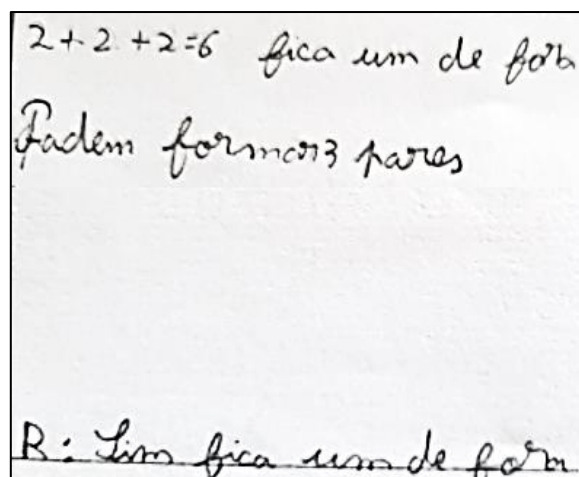 2+2+2=6 fica um de fora
Padem formar 3 pares
R: Sim fica um de fora